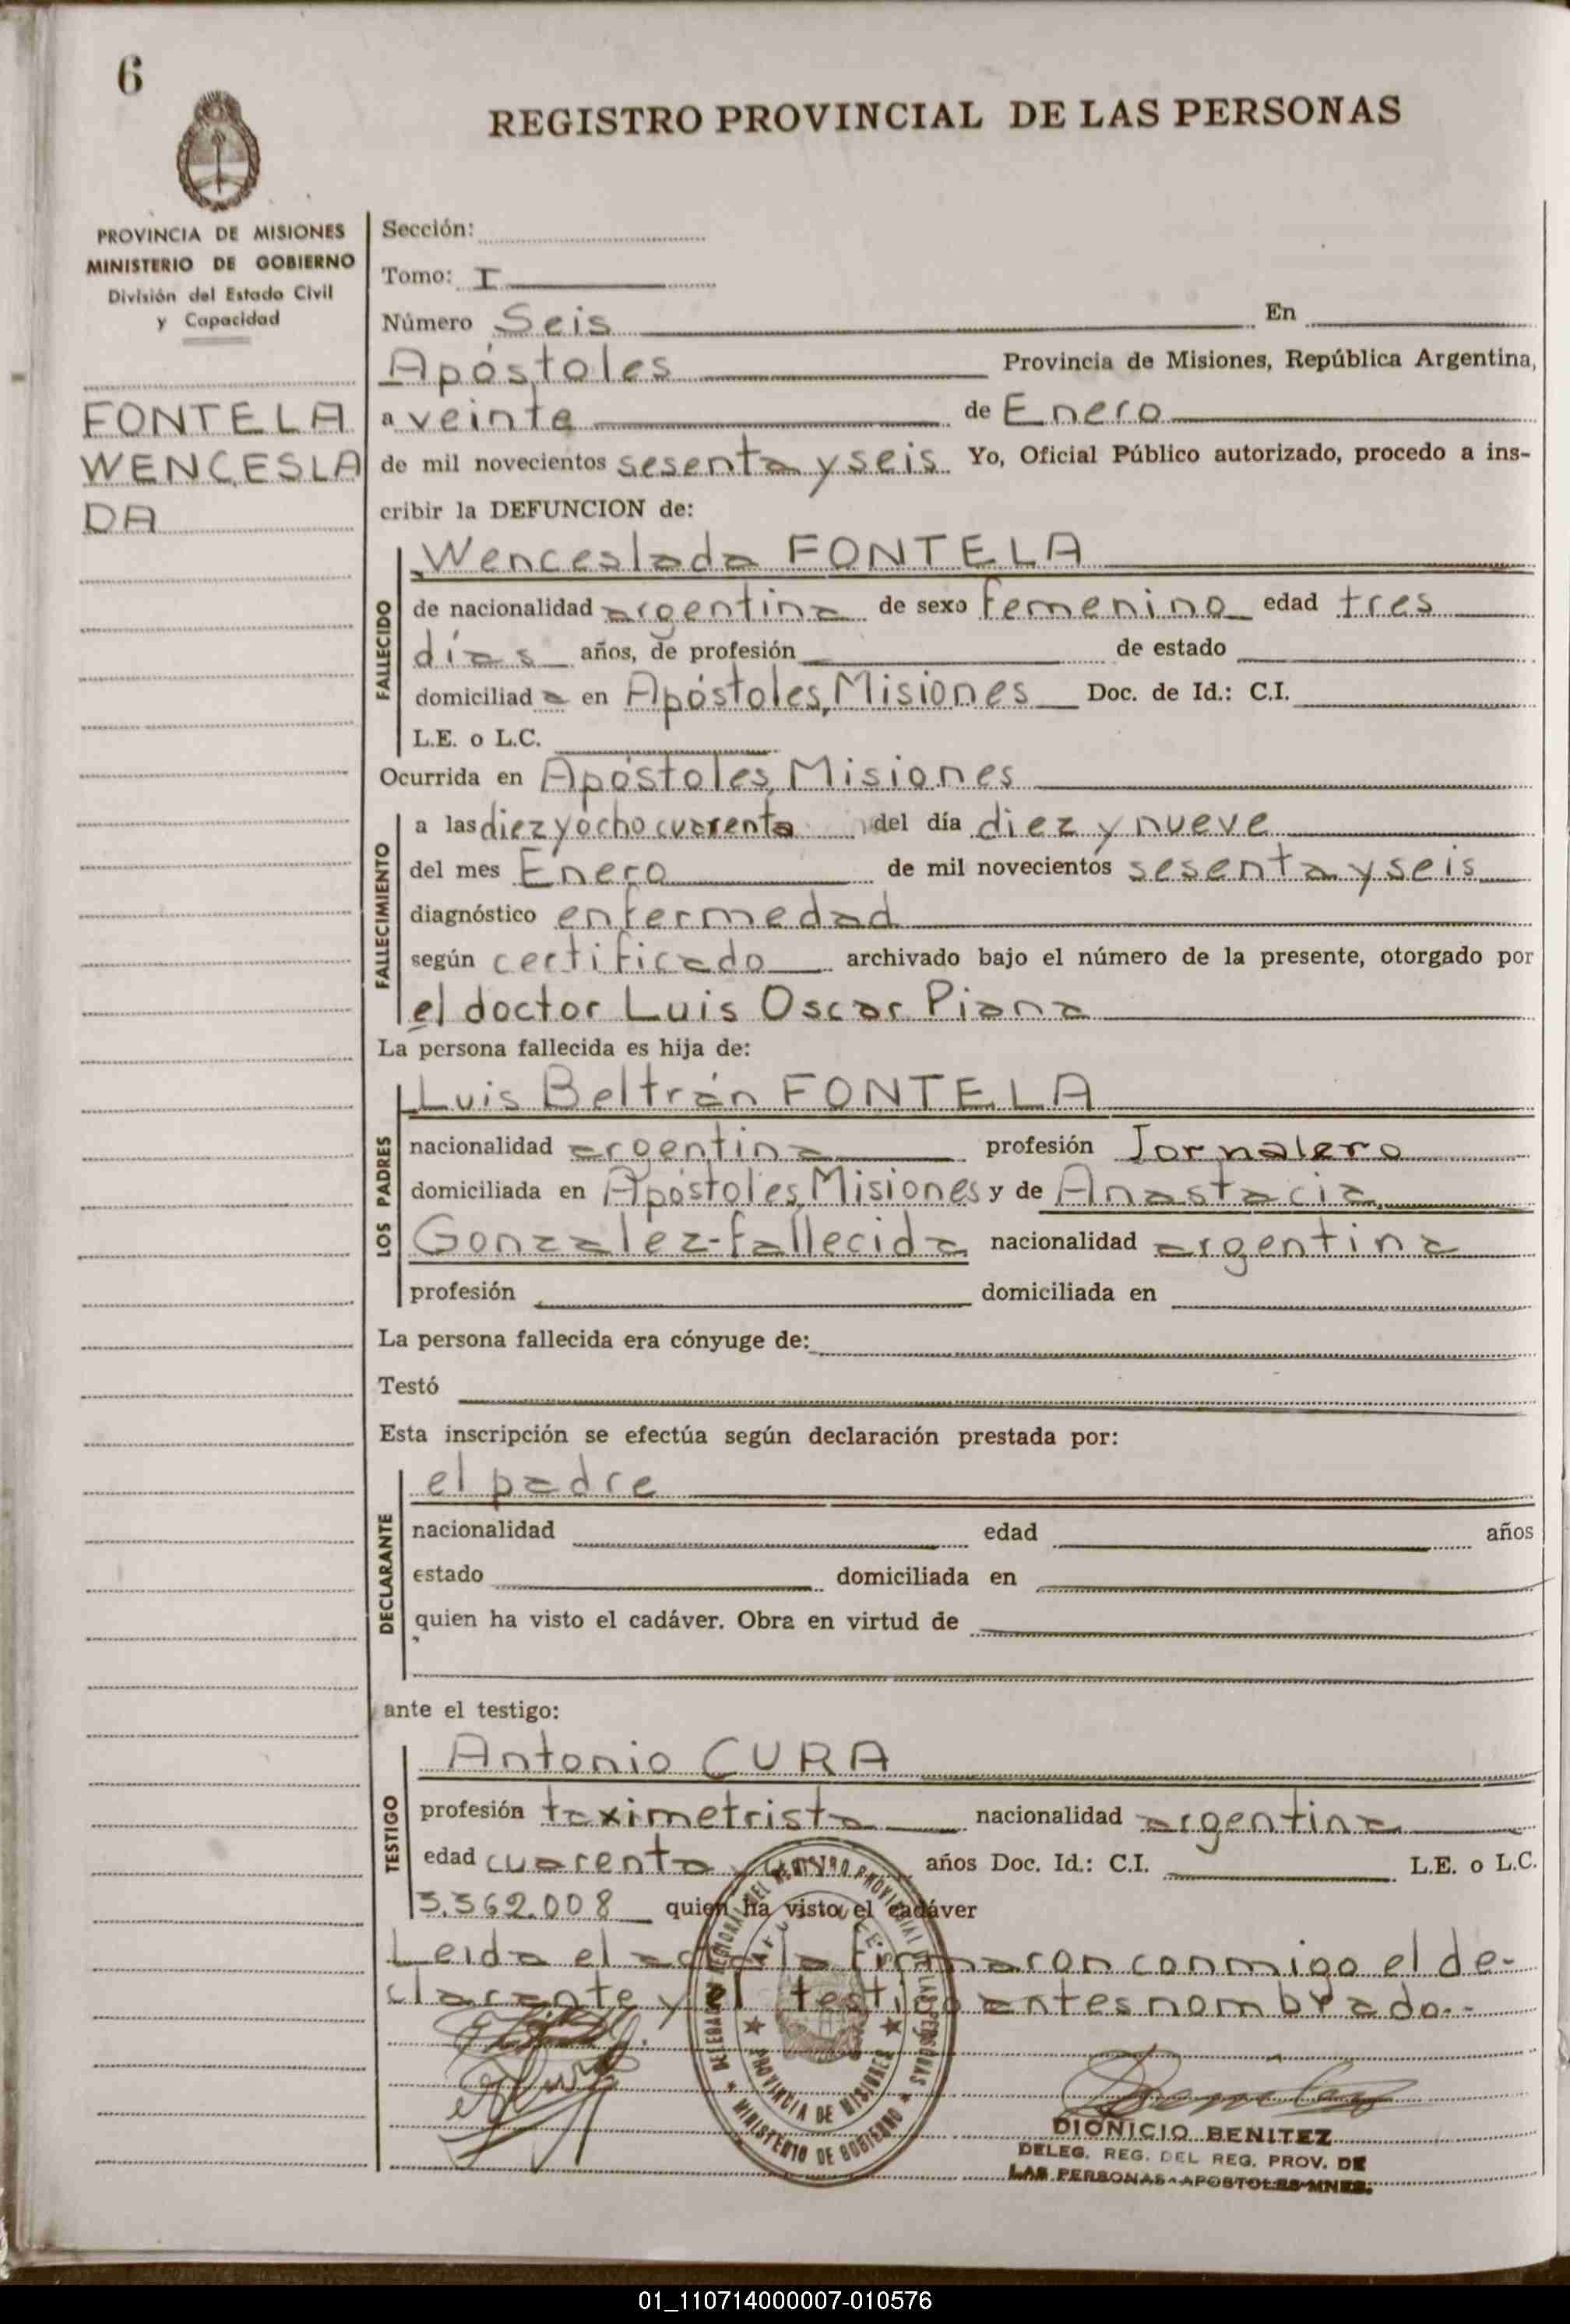 6
REGISTRO PROVINCIAL DE LAS PERSONAS
PROVINCIA DE MISIONES
MINISTERIO DE GOBIERNO
División del Estado Civil
y Capacidad
FONTELA
WENCESLA
DA
Sección:
Tomo: I
Número Seis En
Apóstoles Provincia de Misiones, República Argentina,
a veinte de Enero
de mil novecientos sesenta y seis Yo, Oficial Público autorizado, procedo a ins-
cribir la DEFUNCION de:
FALLECIDO
Wenceslada FONTELA
de nacionalidad argentina de sexo femenino edad tres
días años, de profesión de estado
domiciliad a en Apóstoles, Misiones Doc. de Id.: C.I.
L.E. o L.C.
Ocurrida en Apóstoles, Misiones
FALLECIMIENTO
a las diez y ocho cuarenta del día diez y nueve
del mes Enero de mil novecientos sesenta y seis
diagnóstico enfermedad
según certificado archivado bajo el número de la presente, otorgado por
el doctor Luis Oscar Piana
La persona fallecida es hija de:
LOS PADRES
Luis Beltrán FONTELA
nacionalidad argentina profesión Jornalero
domiciliada en Apóstoles, Misiones y de Anastacia
Gonzalez-fallecida nacionalidad argentina
profesión domiciliada en
La persona fallecida era cónyuge de:
Testó
Esta inscripción se efectúa según declaración prestada por:
DECLARANTE
el padre
nacionalidad edad años
estado domiciliada en
quien ha visto el cadáver. Obra en virtud de
ante el testigo:
TESTIGO
Antonio CURA
profesión taximetrista nacionalidad argentina
edad cuarenta y años Doc. Id.: C.I. L.E. o L.C.
quien ha visto el cadáver
Leida el acta la firmaron conmigo el de-
clarante y el testigo antes nombrado.-
PROVINCIA DE MISIONES
MINISTERIO DE GOBIERNO
DIONICIO BENITEZ
DELEG. REG. DEL REG. PROV. DE
LAS PERSONAS - APOSTOLES-MNES.
01_110714000007-010576